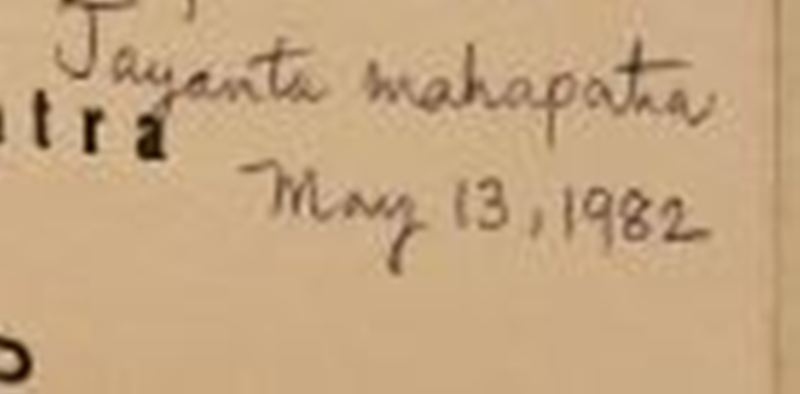 Jayanta mahapatra
tra
May 13, 1982